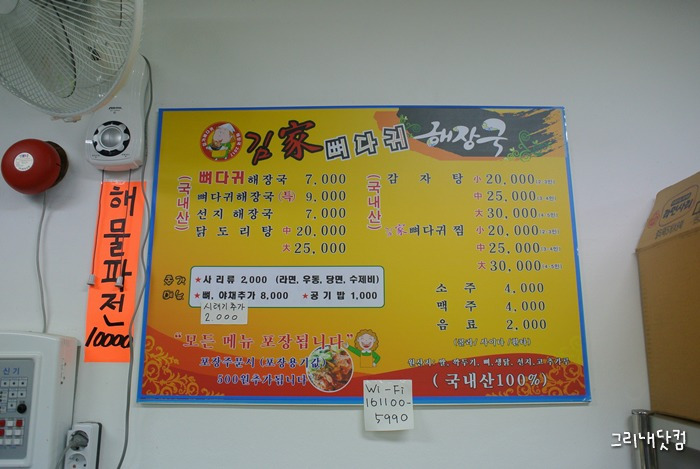 김家 뼈다귀 해장국
(국내산)
뼈다귀해장국 7,000
뼈다귀해장국(특) 9,000
선지 해장국 7,000
닭도리탕 中 20,000
大 25,000
(국내산)
감자탕 小 20,000
中 25,000
大 30,000
家뼈다귀찜 小 20,000
中 25,000
大 30,000
소주 4,000
맥주 4,000
음료 2,000
추가
메뉴
★사리류 2,000 (라면, 우동, 당면, 수제비)
★뼈, 야채추가 8,000 ★공기밥 1,000
시래기추가
2.000
"모든 메뉴 포장됩니다"
포장주문시 (포장용기값)
500원추가됩니다
원산지: 쌀, 깍두기, 뼈, 생닭, 선지, 고추가루
(국내산100%)
해물파전
10000
Wi-Fi
161100-
5990
신기
그리내닷컴